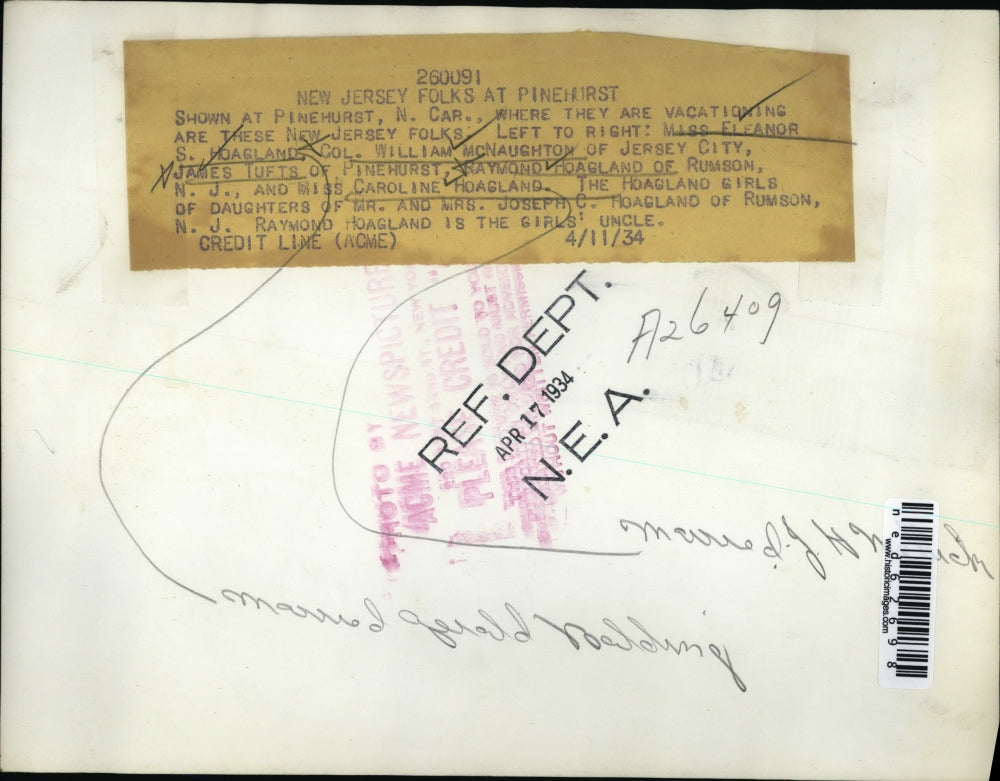 260091
NEW JERSEY FOLKS AT PINEHURST
SHOWN AT PINEHURST, N. CAR., WHERE THEY ARE VACATIONING
ARE THESE NEW JERSEY FOLKS. LEFT TO RIGHT: MISS ELEANOR
S. HOAGLAND, COL. WILLIAM MCNAUGHTON OF JERSEY CITY,
JAMES TUFTS OF PINEHURST, RAYMOND HOAGLAND OF RUMSON,
N. J., AND MISS CAROLINE HOAGLAND. THE HOAGLAND GIRLS
OF DAUGHTERS OF MR. AND MRS. JOSEPH C. HOAGLAND OF RUMSON,
N. J. RAYMOND HOAGLAND IS THE GIRLS' UNCLE.
CREDIT LINE (ACME) 4/11/34
PHOTO BY
ACME NEWSPICTURE
CREDIT
REF. DEPT.
APR 17 1934
N. E. A.
A26409
married
married Gerald
ned62698
www.historicimages.com